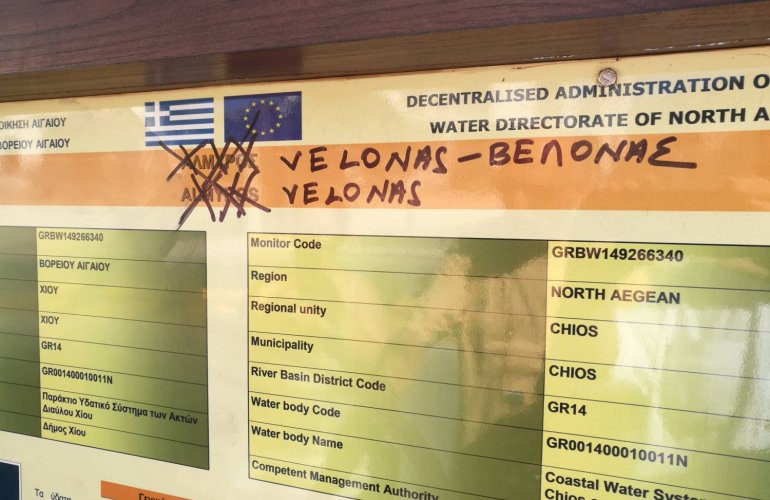 ΟΙΚΗΣΗ ΑΙΓΑΙΟΥ
ΒΟΡΕΙΟΥ ΑΙΓΑΙΟΥ
DECENTRALISED ADMINISTRATION O
WATER DIRECTORATE OF NORTH A
VELONAS - ΒΕΛΟΝΑΣ
VELONAS
GRBW149266340
ΒΟΡΕΙΟΥ ΑΙΓΑΙΟΥ
ΧΙΟΥ
ΧΙΟΥ
GR14
GR001400010011N
Παράκτιο Υδατικό Σύστημα των Ακτών
Διαύλου Χίου
Δήμος Χίου
Monitor Code GRBW149266340
Region NORTH AEGEAN
Regional unity CHIOS
Municipality CHIOS
River Basin District Code GR14
Water body Code GR001400010011N
Water body Name Coastal Water System
Competent Management Authority Chios
Τα ύδατα